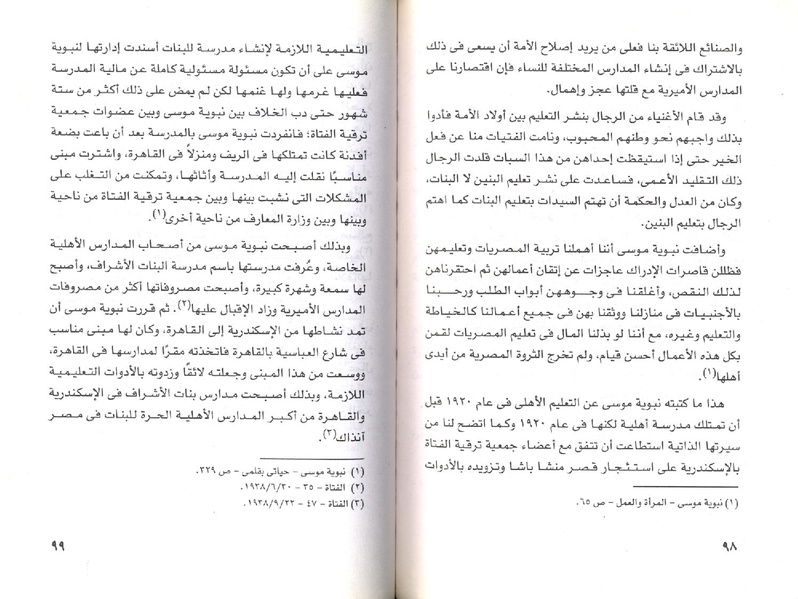 والصنائع اللائقة بنا فعلى من يريد إصلاح الأمة أن يسعى فى ذلك
بالاشتراك فى إنشاء المدارس المختلفة للنساء فإن اقتصارنا على
المدارس الأميرية مع قلتها عجز وإهمال.
وقد قام الأغنياء من الرجال بنشر التعليم بين أولاد الأمة فأدوا
بذلك واجبهم نحو وطنهم المحبوب، ونامت الفتيات منا عن فعل
الخير حتى إذا استيقظت إحداهن من هذا السبات قلدت الرجال
ذلك التقليد الأعمى، فساعدت على نشر تعليم البنين لا البنات،
وكان من العدل والحكمة أن تهتم السيدات بتعليم البنات كما اهتم
الرجال بتعليم البنين.
وأضافت نبوية موسى أننا أهملنا تربية المصريات وتعليمهن
فظللن قاصرات الإدراك عاجزات عن إتقان أعمالهن ثم احتقرناهن
لذلك النقص، وأغلقنا فى وجوههن أبواب الطلب ورحبنا
بالأجنبيات فى منازلنا ووثقنا بهن فى جميع أعمالنا كالخياطة
والتعليم وغيره، مع أننا لو بذلنا المال فى تعليم المصريات لقمن
بكل هذه الأعمال أحسن قيام، ولم تخرج الثروة المصرية من أيدى
أهلها(١).
هذا ما كتبته نبوية موسى عن التعليم الأهلى فى عام ١٩٢٠ قبل
أن تمتلك مدرسة أهلية لكنها فى عام ١٩٢٠ وكما اتضح لنا من
سيرتها الذاتية استطاعت أن تتفق مع أعضاء جمعية ترقية الفتاة
بالإسكندرية على استئجار قصر منشا باشا وتزويده بالأدوات
(١) نبوية موسى – المرأة والعمل – ص ٦٥.
٩٨
التعليمية اللازمة لإنشاء مدرسة للبنات أسندت إدارتها لنبوية
موسى على أن تكون مسئولة مسئولية كاملة عن مالية المدرسة
فعليها غرمها ولها غنمها لكن لم يمض على ذلك أكثر من ستة
شهور حتى دب الخلاف بين نبوية موسى وبين عضوات جمعية
ترقية الفتاة؛ فانفردت نبوية موسى بالمدرسة بعد أن باعت بضعة
أفدنة كانت تمتلكها فى الريف ومنزلاً فى القاهرة، واشترت مبنى
مناسبًا نقلت إليه المدرسة وأثاثها، وتمكنت من التغلب على
المشكلات التى نشبت بينها وبين جمعية ترقية الفتاة من ناحية
وبينها وبين وزارة المعارف من ناحية أخرى(١).
وبذلك أصبحت نبوية موسى من أصحاب المدارس الأهلية
الخاصة، وعُرفت مدرستها باسم مدرسة البنات الأشراف، وأصبح
لها سمعة وشهرة كبيرة، وأصبحت مصروفاتها أكثر من مصروفات
المدارس الأميرية وزاد الإقبال عليها(٢). ثم قررت نبوية موسى أن
تمد نشاطها من الإسكندرية إلى القاهرة، وكان لها مبنى مناسب
فى شارع العباسية بالقاهرة فاتخذته مقرًا لمدارسها فى القاهرة،
ووسعت من هذا المبنى وجعلته لائقًا وزودته بالأدوات التعليمية
اللازمة، وبذلك أصبحت مدارس بنات الأشراف فى الإسكندرية
والقاهرة من أكبر المدارس الأهلية الحرة للبنات فى مصر
آنذاك(٣).
(١) نبوية موسى – حياتى بقلمى – ص ٣٢٩.
(٢) الفتاة – ٣٥ – ١٩٣٨/٦/٣٠.
(٣) الفتاة – ٤٧ – ١٩٣٨/٩/٢٢.
٩٩